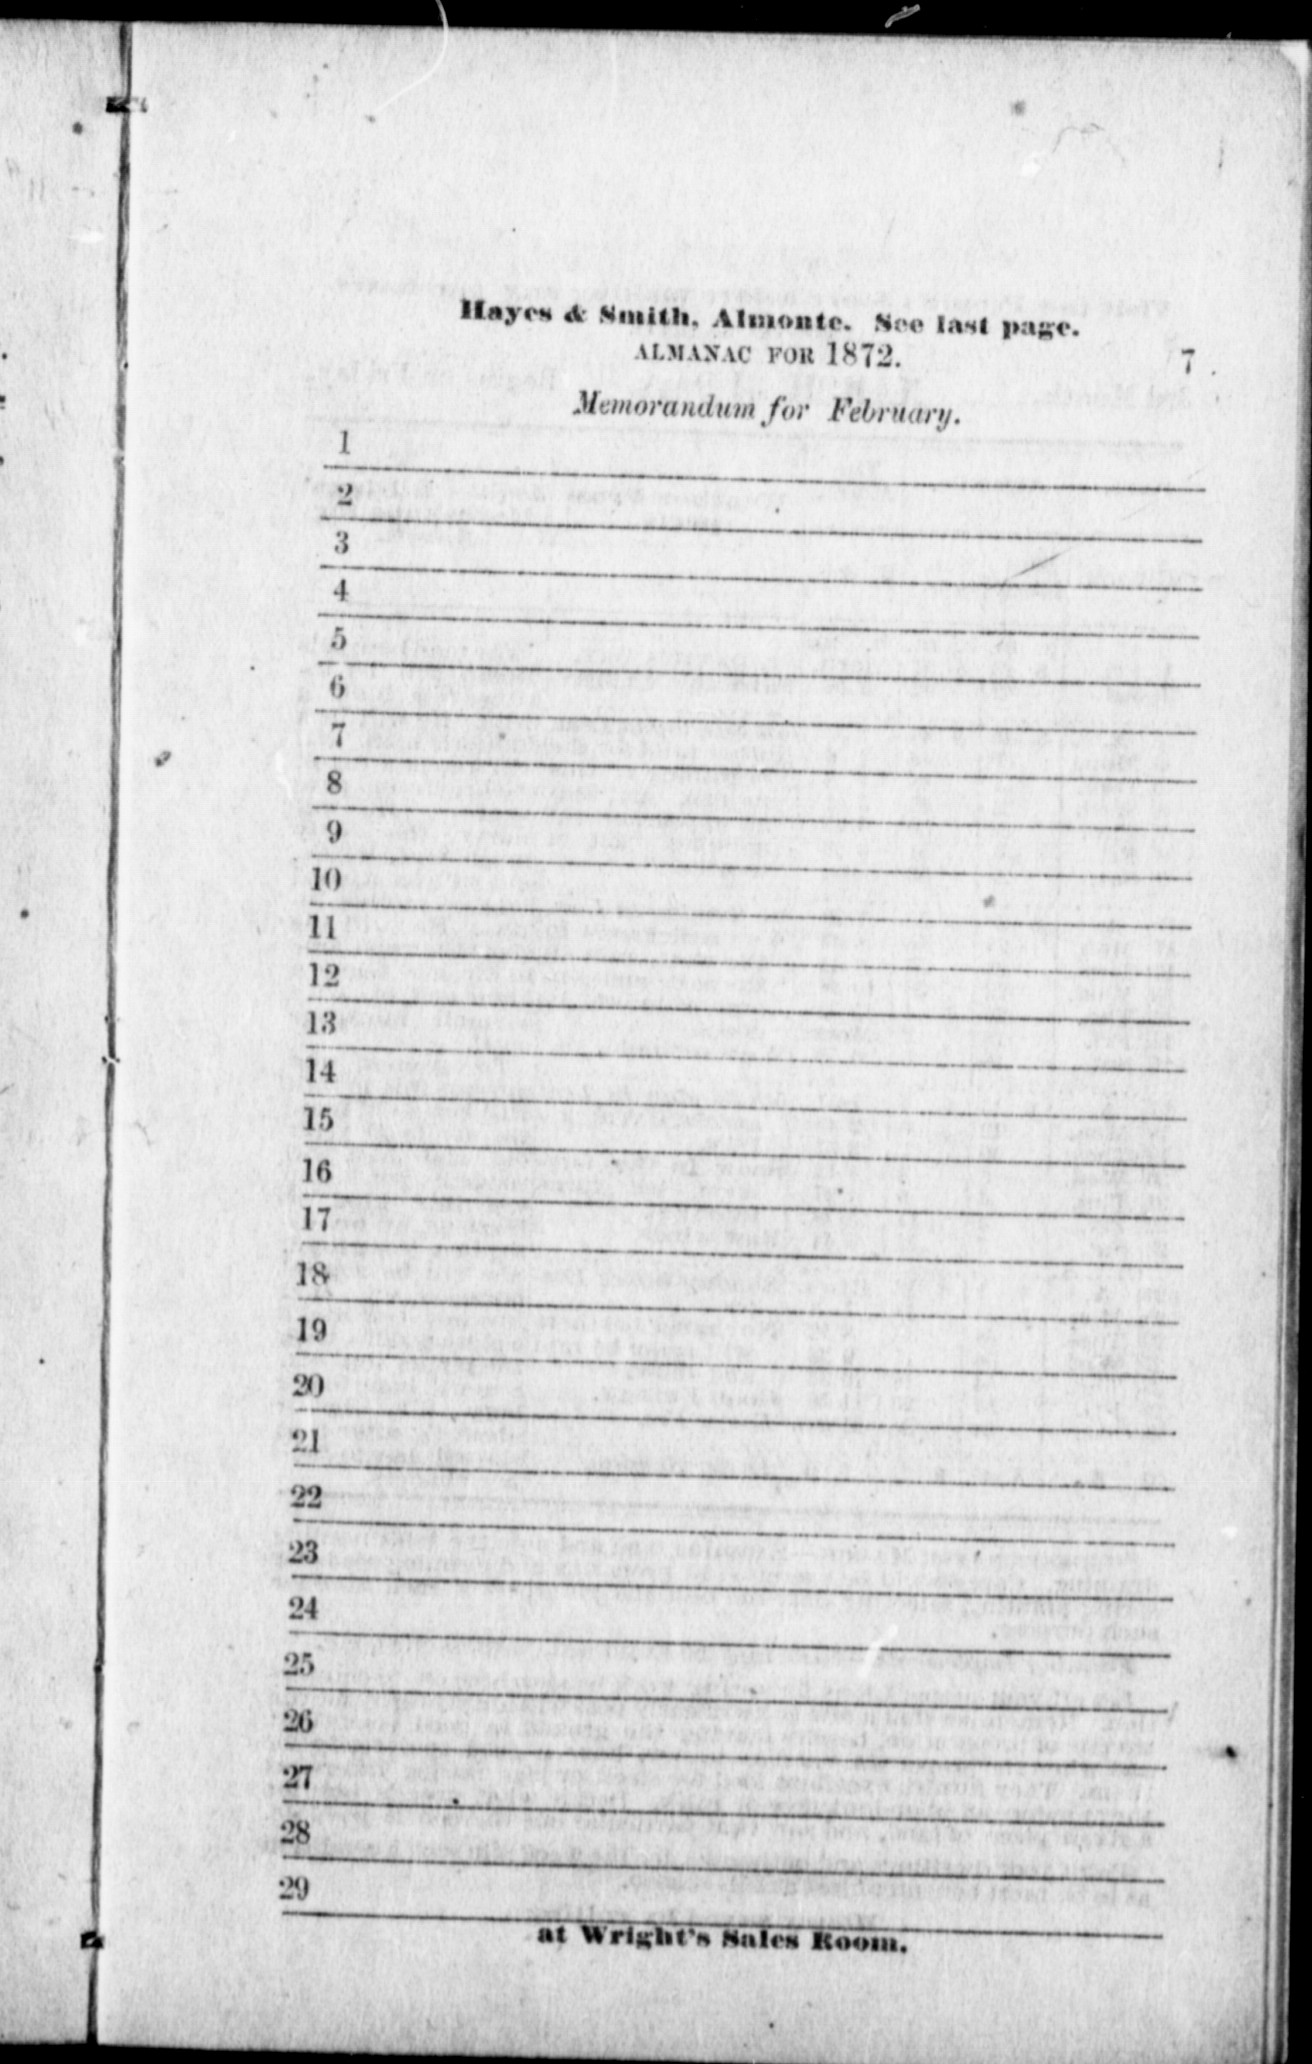 Hayes & Smith, Almonte. See last page.
ALMANAC FOR 1872. 7
Memorandum for February.
1
2
3
4
5
6
7
8
9
10
11
12
13
14
15
16
17
18
19
20
21
22
23
24
25
26
27
28
29
at Wright's Sales Room.